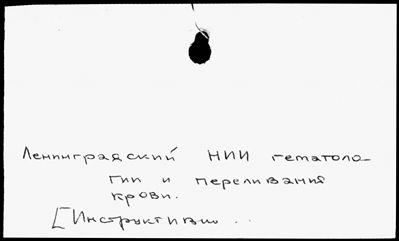 Ленинградский НИИ гематоло-
гии и переливания
крови.
[Инструктивно ..